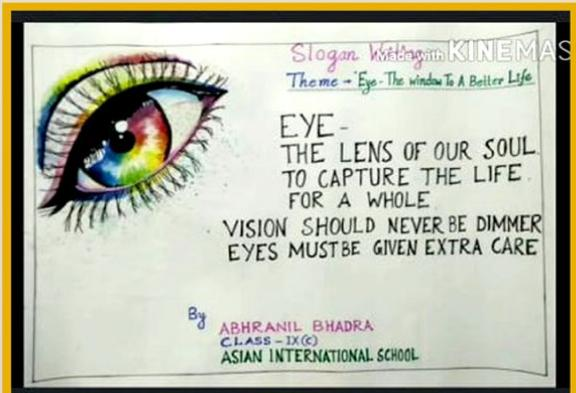 Slogan Writing
Made with KINEMAS
Theme → "Eye - The window To A Better Life
EYE -
THE LENS OF OUR SOUL
TO CAPTURE THE LIFE
FOR A WHOLE
VISION SHOULD NEVER BE DIMMER
EYES MUST BE GIVEN EXTRA CARE
By
ABHRANIL BHADRA
CLASS - IX(C)
ASIAN INTERNATIONAL SCHOOL